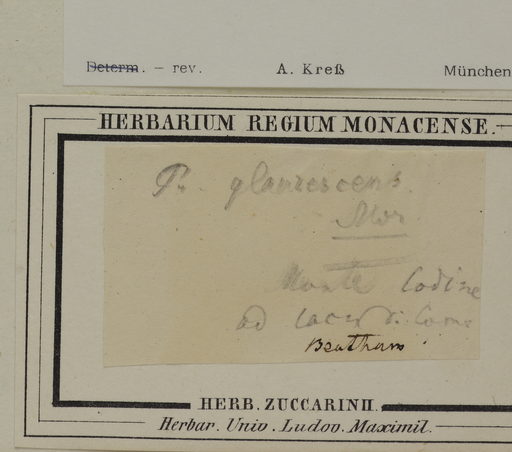 Determ. – rev. A. Kreß München
HERBARIUM REGIUM MONACENSE.
P. glaucescens
Mor
Monte Codine
ad lacus di Como
Bentham
HERB. ZUCCARINII.
Herbar. Univ. Ludov. Maximil.